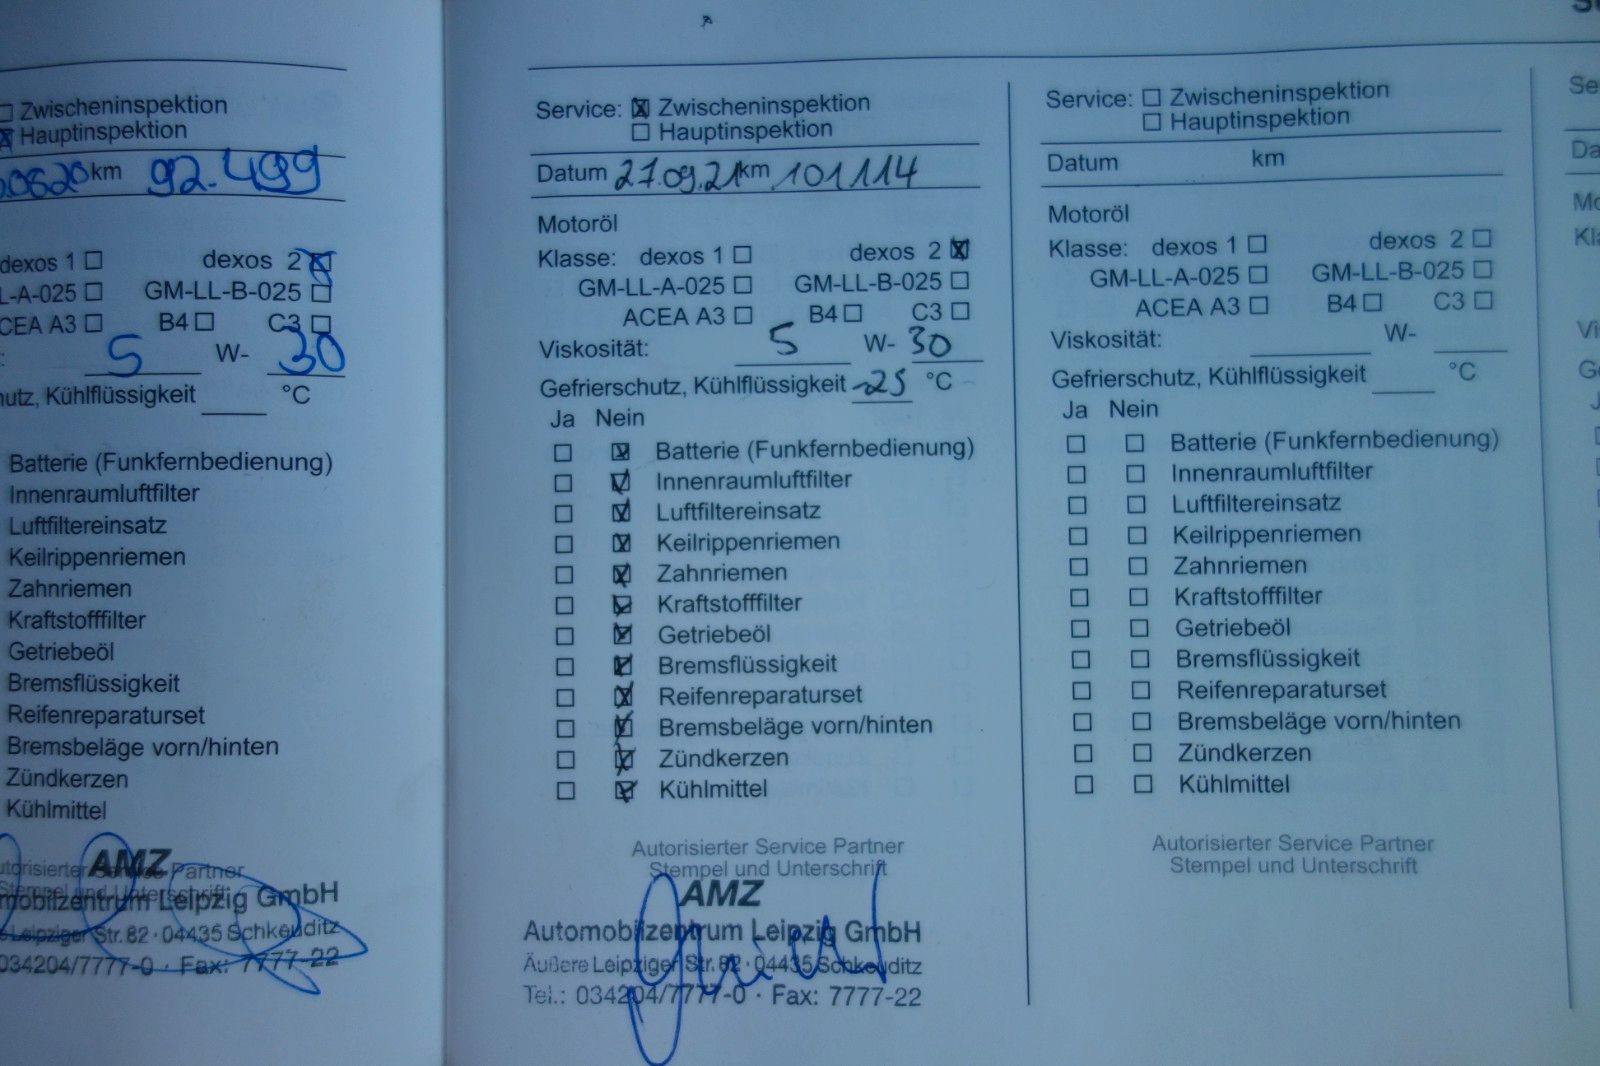 Zwischeninspektion
Hauptinspektion
km 92.499
dexos 1 dexos 2
L-A-025 GM-LL-B-025
CEA A3 B4 C3
5 W- 30
utz, Kühlflüssigkeit °C
Batterie (Funkfernbedienung)
Innenraumluftfilter
Luftfiltereinsatz
Keilrippenriemen
Zahnriemen
Kraftstofffilter
Getriebeöl
Bremsflüssigkeit
Reifenreparaturset
Bremsbeläge vorn/hinten
Zündkerzen
Kühlmittel
utorisierter Service Partner
Stempel und Unterschrift
AMZ
mobilzentrum Leipzig GmbH
Leipziger Str. 82 · 04435 Schkeuditz
034204/7777-0 · Fax: 7777-22
Service: Zwischeninspektion
Hauptinspektion
Datum 27.09.21 km 101114
Motoröl
Klasse: dexos 1 dexos 2
GM-LL-A-025 GM-LL-B-025
ACEA A3 B4 C3
Viskosität: 5 W- 30
Gefrierschutz, Kühlflüssigkeit -25 °C
Ja Nein
Batterie (Funkfernbedienung)
Innenraumluftfilter
Luftfiltereinsatz
Keilrippenriemen
Zahnriemen
Kraftstofffilter
Getriebeöl
Bremsflüssigkeit
Reifenreparaturset
Bremsbeläge vorn/hinten
Zündkerzen
Kühlmittel
Autorisierter Service Partner
Stempel und Unterschrift
AMZ
Automobilzentrum Leipzig GmbH
Äußere Leipziger Str. 82 · 04435 Schkeuditz
Tel.: 034204/7777-0 · Fax: 7777-22
Service: Zwischeninspektion
Hauptinspektion
Datum km
Motoröl
Klasse: dexos 1 dexos 2
GM-LL-A-025 GM-LL-B-025
ACEA A3 B4 C3
Viskosität: W-
Gefrierschutz, Kühlflüssigkeit °C
Ja Nein
Batterie (Funkfernbedienung)
Innenraumluftfilter
Luftfiltereinsatz
Keilrippenriemen
Zahnriemen
Kraftstofffilter
Getriebeöl
Bremsflüssigkeit
Reifenreparaturset
Bremsbeläge vorn/hinten
Zündkerzen
Kühlmittel
Autorisierter Service Partner
Stempel und Unterschrift